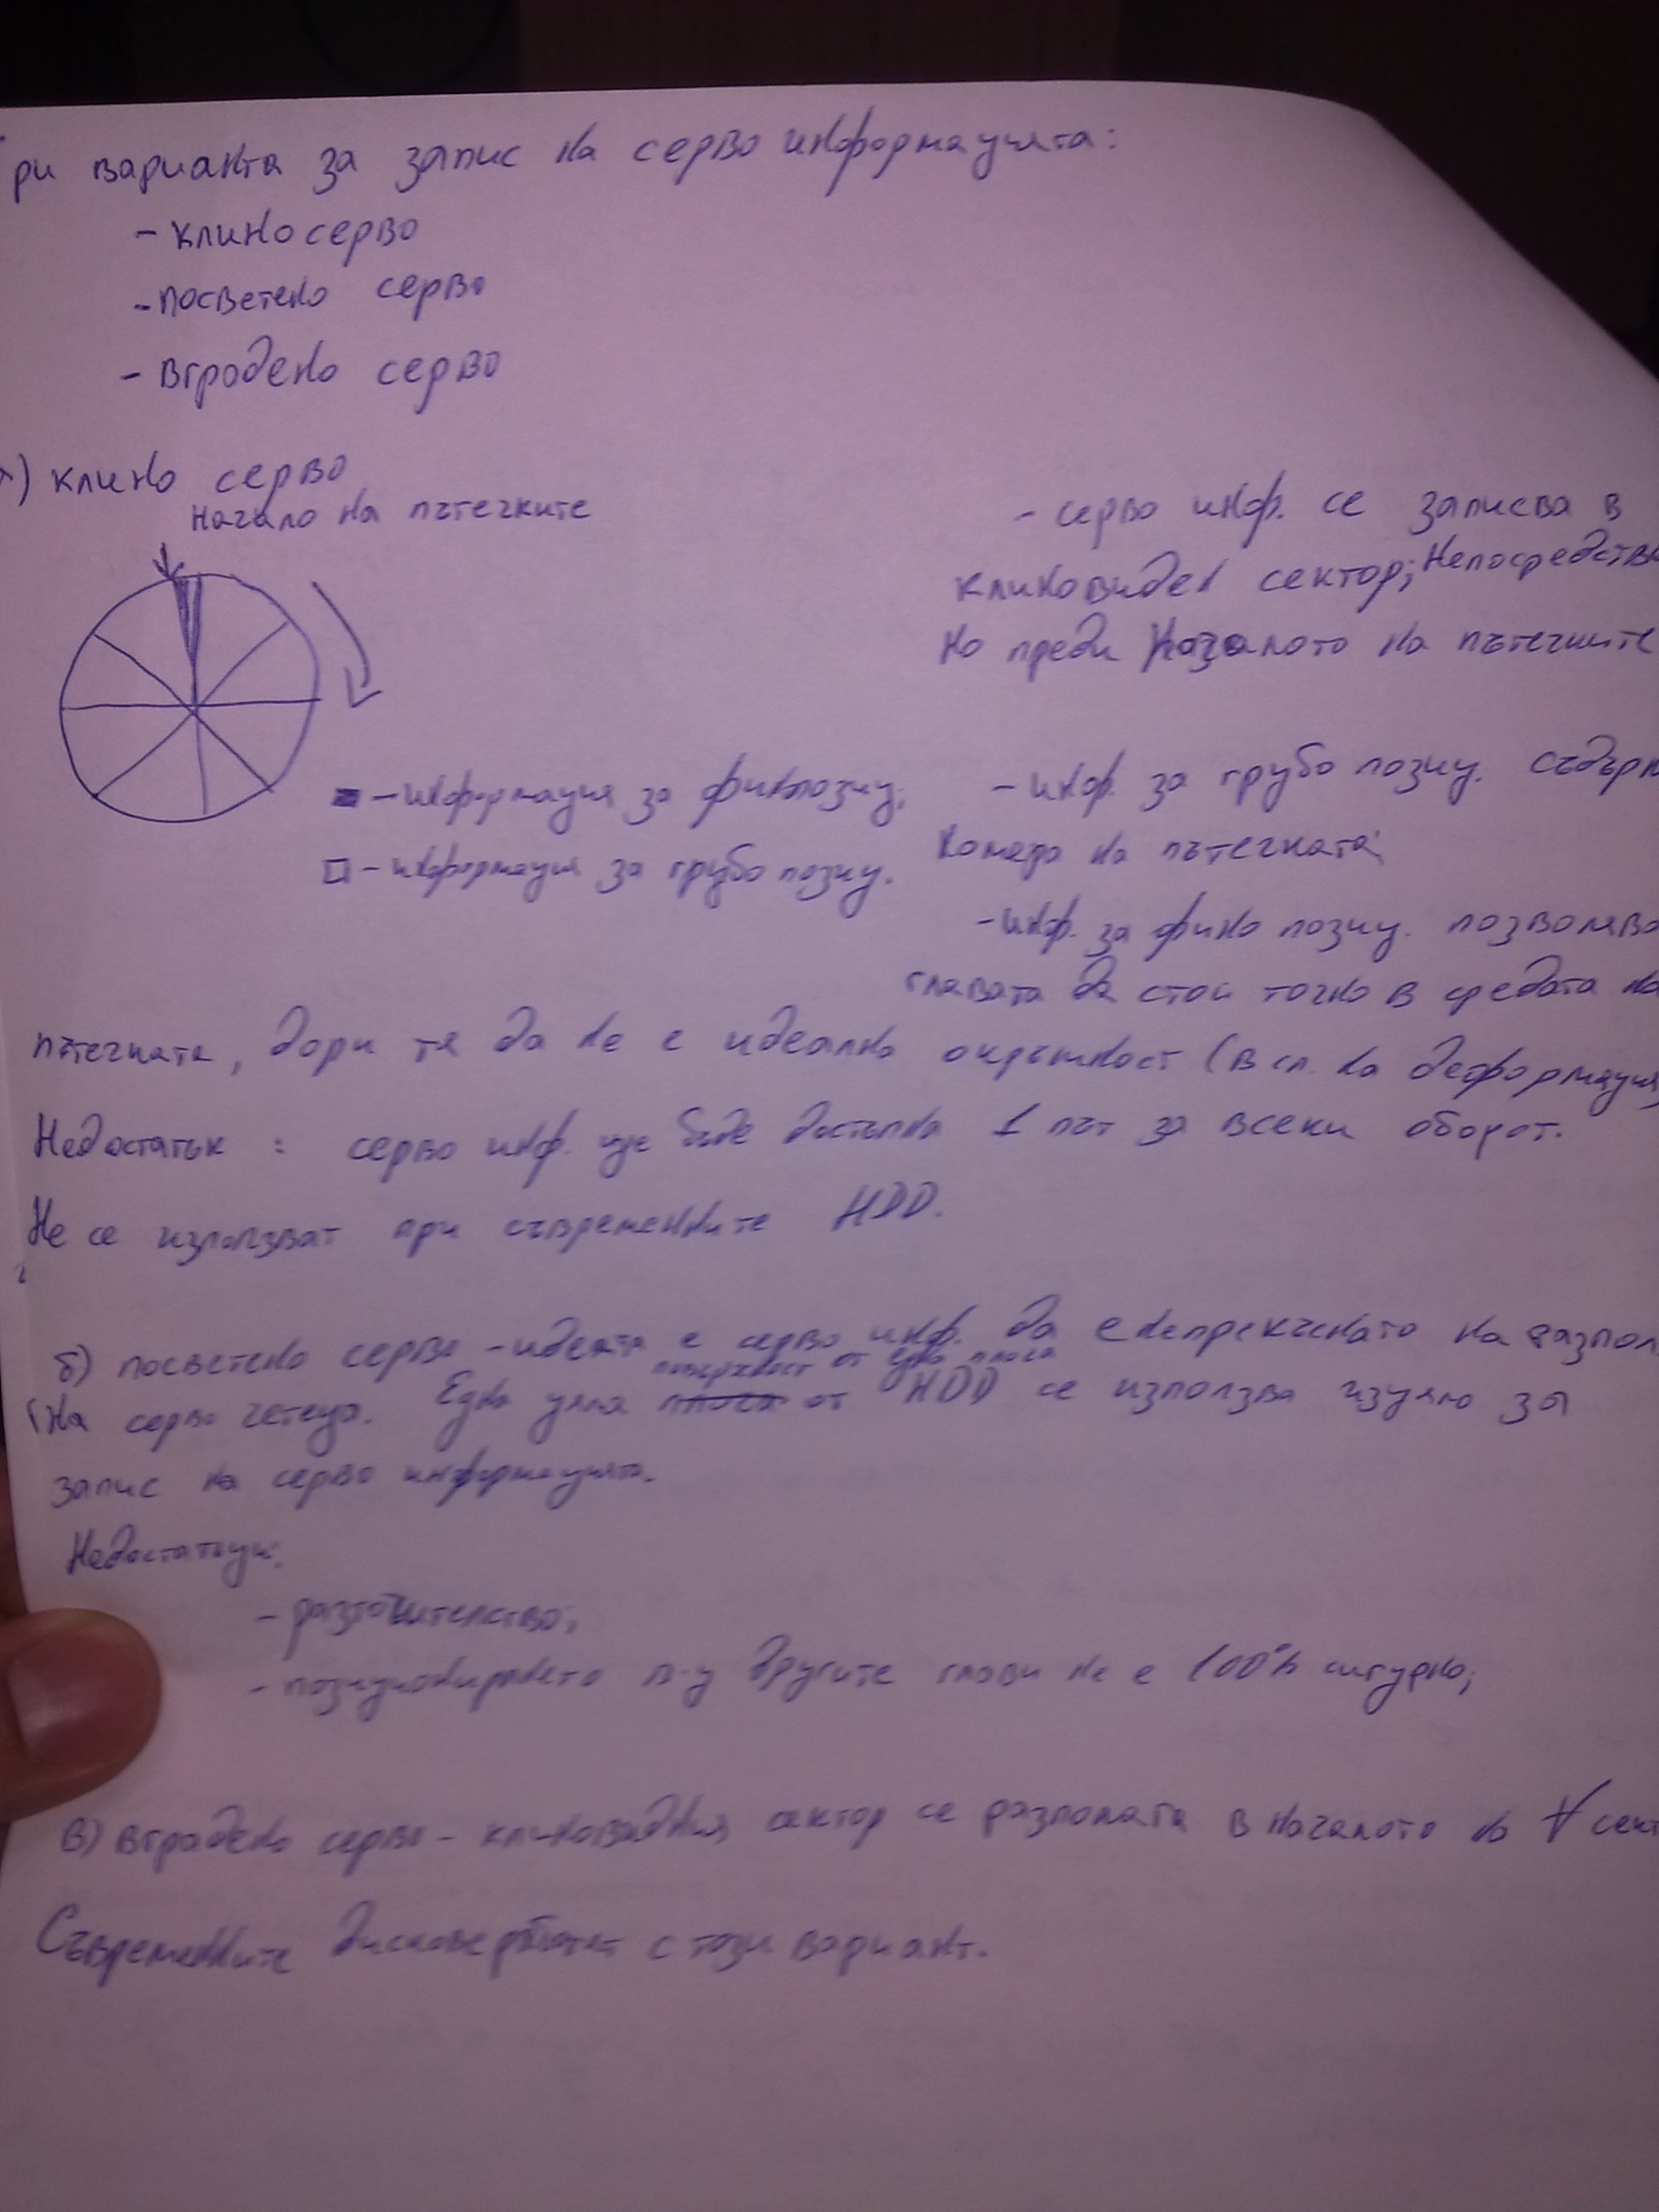 ри варианта за запис на серво информацията:
- клино серво
- посветено серво
- вградено серво
) клино серво
Начало на пътечките
- серво инф. се записва в
клиновиден сектор; Непосредстве
но преди началото на пътечките
- информация за финопозиц.
- информация за грубо позиц.
- инф. за грубо позиц. съдърж
номера на пътечката;
- инф. за фино позиц. позволява
главата да стои точно в средата на
пътечката, дори тя да не е идеална окръжност (в сл. на деформация)
Недостатък : серво инф. ще бъде достъпна 1 път за всеки оборот.
Не се използват при съвременните HDD.
б) посветено серво - идеята е серво инф. да е непрекъснато на разпол.
поверхност от една плоча
на серво четеца. Една цяла плоча от HDD се използва изцяло за
запис на серво информацията.
Недостатъци:
- разточителство;
- позиционирането п-у другите глави не е 100% сигурно;
в) вградено серво - клиновидния сектор се разполага в началото на ∀ сект
Съвременните дискове работят с този вариант.